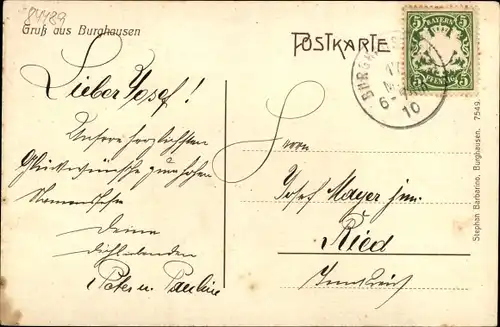 84489
Gruß aus Burghausen
POSTKARTE
BAYERN
5 5
5 5
PFENNIG
BURGHA
6-
10
Lieber Josef!
Unsere herzlichsten
Glückwünsche zum hohen
Namensfeste
Deine
dich liebenden
Peter u. Pauline
Herrn
Josef Mayer jun.
Ried
Innkreis
Stephan Barbarino, Burghausen. 7549.